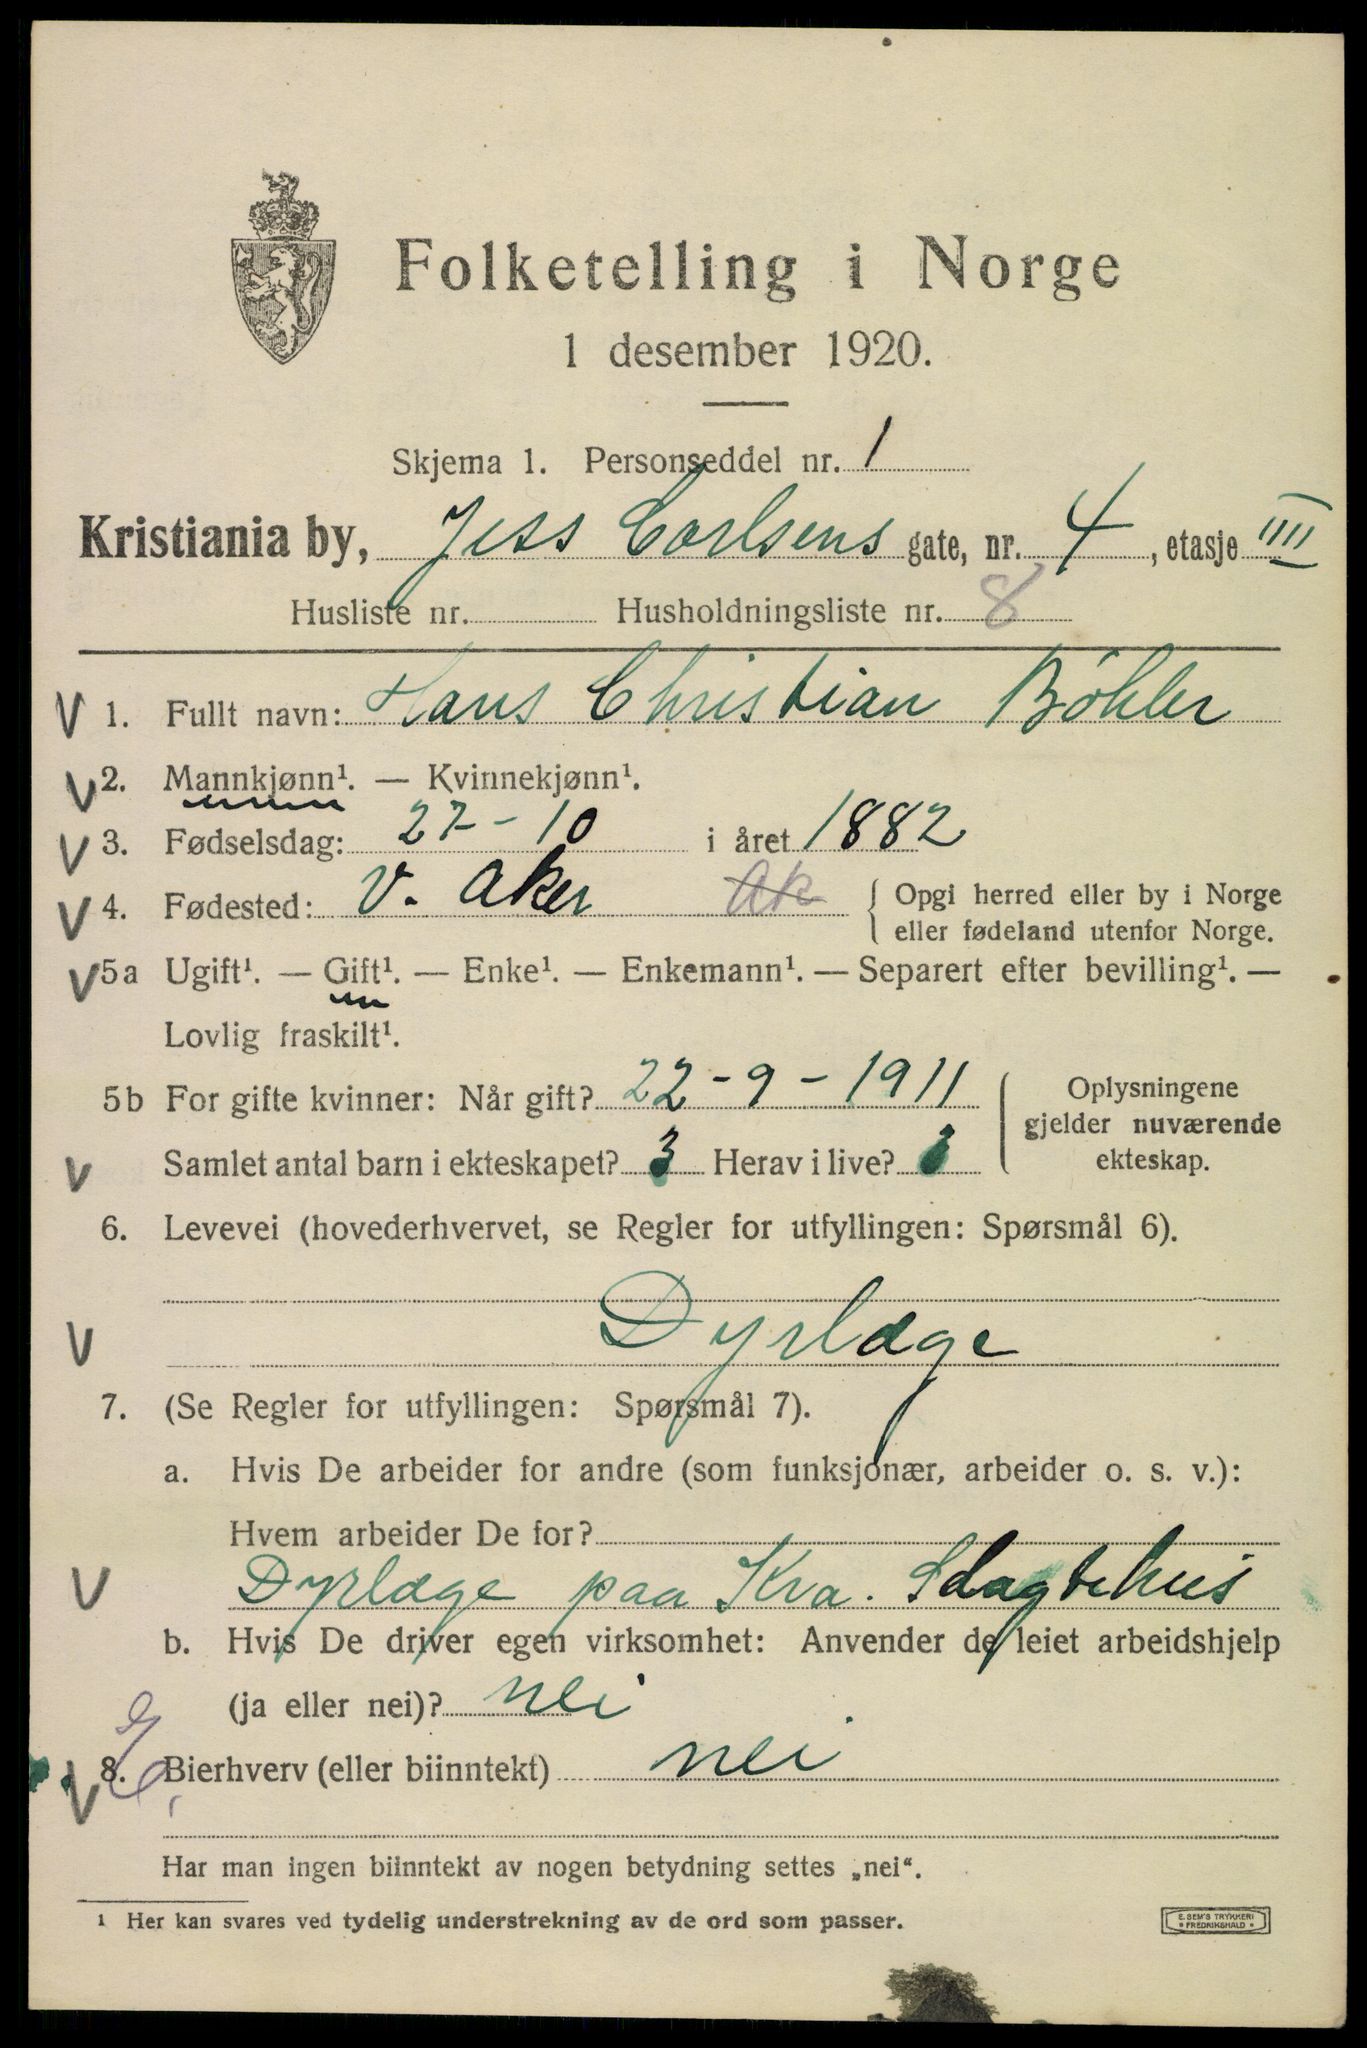 Folketelling i Norge
1 desember 1920.
Skjema 1. Personseddel nr. 1
Kristiania by, Jess Carlsens gate, nr. 4, etasje IIII
Husliste nr. Husholdningsliste nr. 8
V 1. Fullt navn: Hans Christian Bøhler
V 2. Mannkjønn¹. — Kvinnekjønn¹.
V 3. Fødselsdag: 27-10 i året 1882
V 4. Fødested: V. Aker Ak { Opgi herred eller by i Norge
eller fødeland utenfor Norge.
V 5a Ugift¹. — Gift¹. — Enke¹. — Enkemann¹. — Separert efter bevilling¹. —
Lovlig fraskilt¹.
5b For gifte kvinner: Når gift? 22-9-1911 { Oplysningene
gjelder nuværende
ekteskap.
V Samlet antal barn i ekteskapet? 3 Herav i live? 3
6. Levevei (hovederhvervet, se Regler for utfyllingen: Spørsmål 6).
V Dyrlæge
7. (Se Regler for utfyllingen: Spørsmål 7).
a. Hvis De arbeider for andre (som funksjonær, arbeider o. s. v.):
Hvem arbeider De for?
V Dyrlæge paa Kra. Slagtehus
b. Hvis De driver egen virksomhet: Anvender de leiet arbeidshjelp
(ja eller nei)? nei
V 8. Bierhverv (eller biinntekt) nei
Har man ingen biinntekt av nogen betydning settes „nei“.
¹ Her kan svares ved tydelig understrekning av de ord som passer.
E. SEM'S TRYKKERI
FREDRIKSHALD